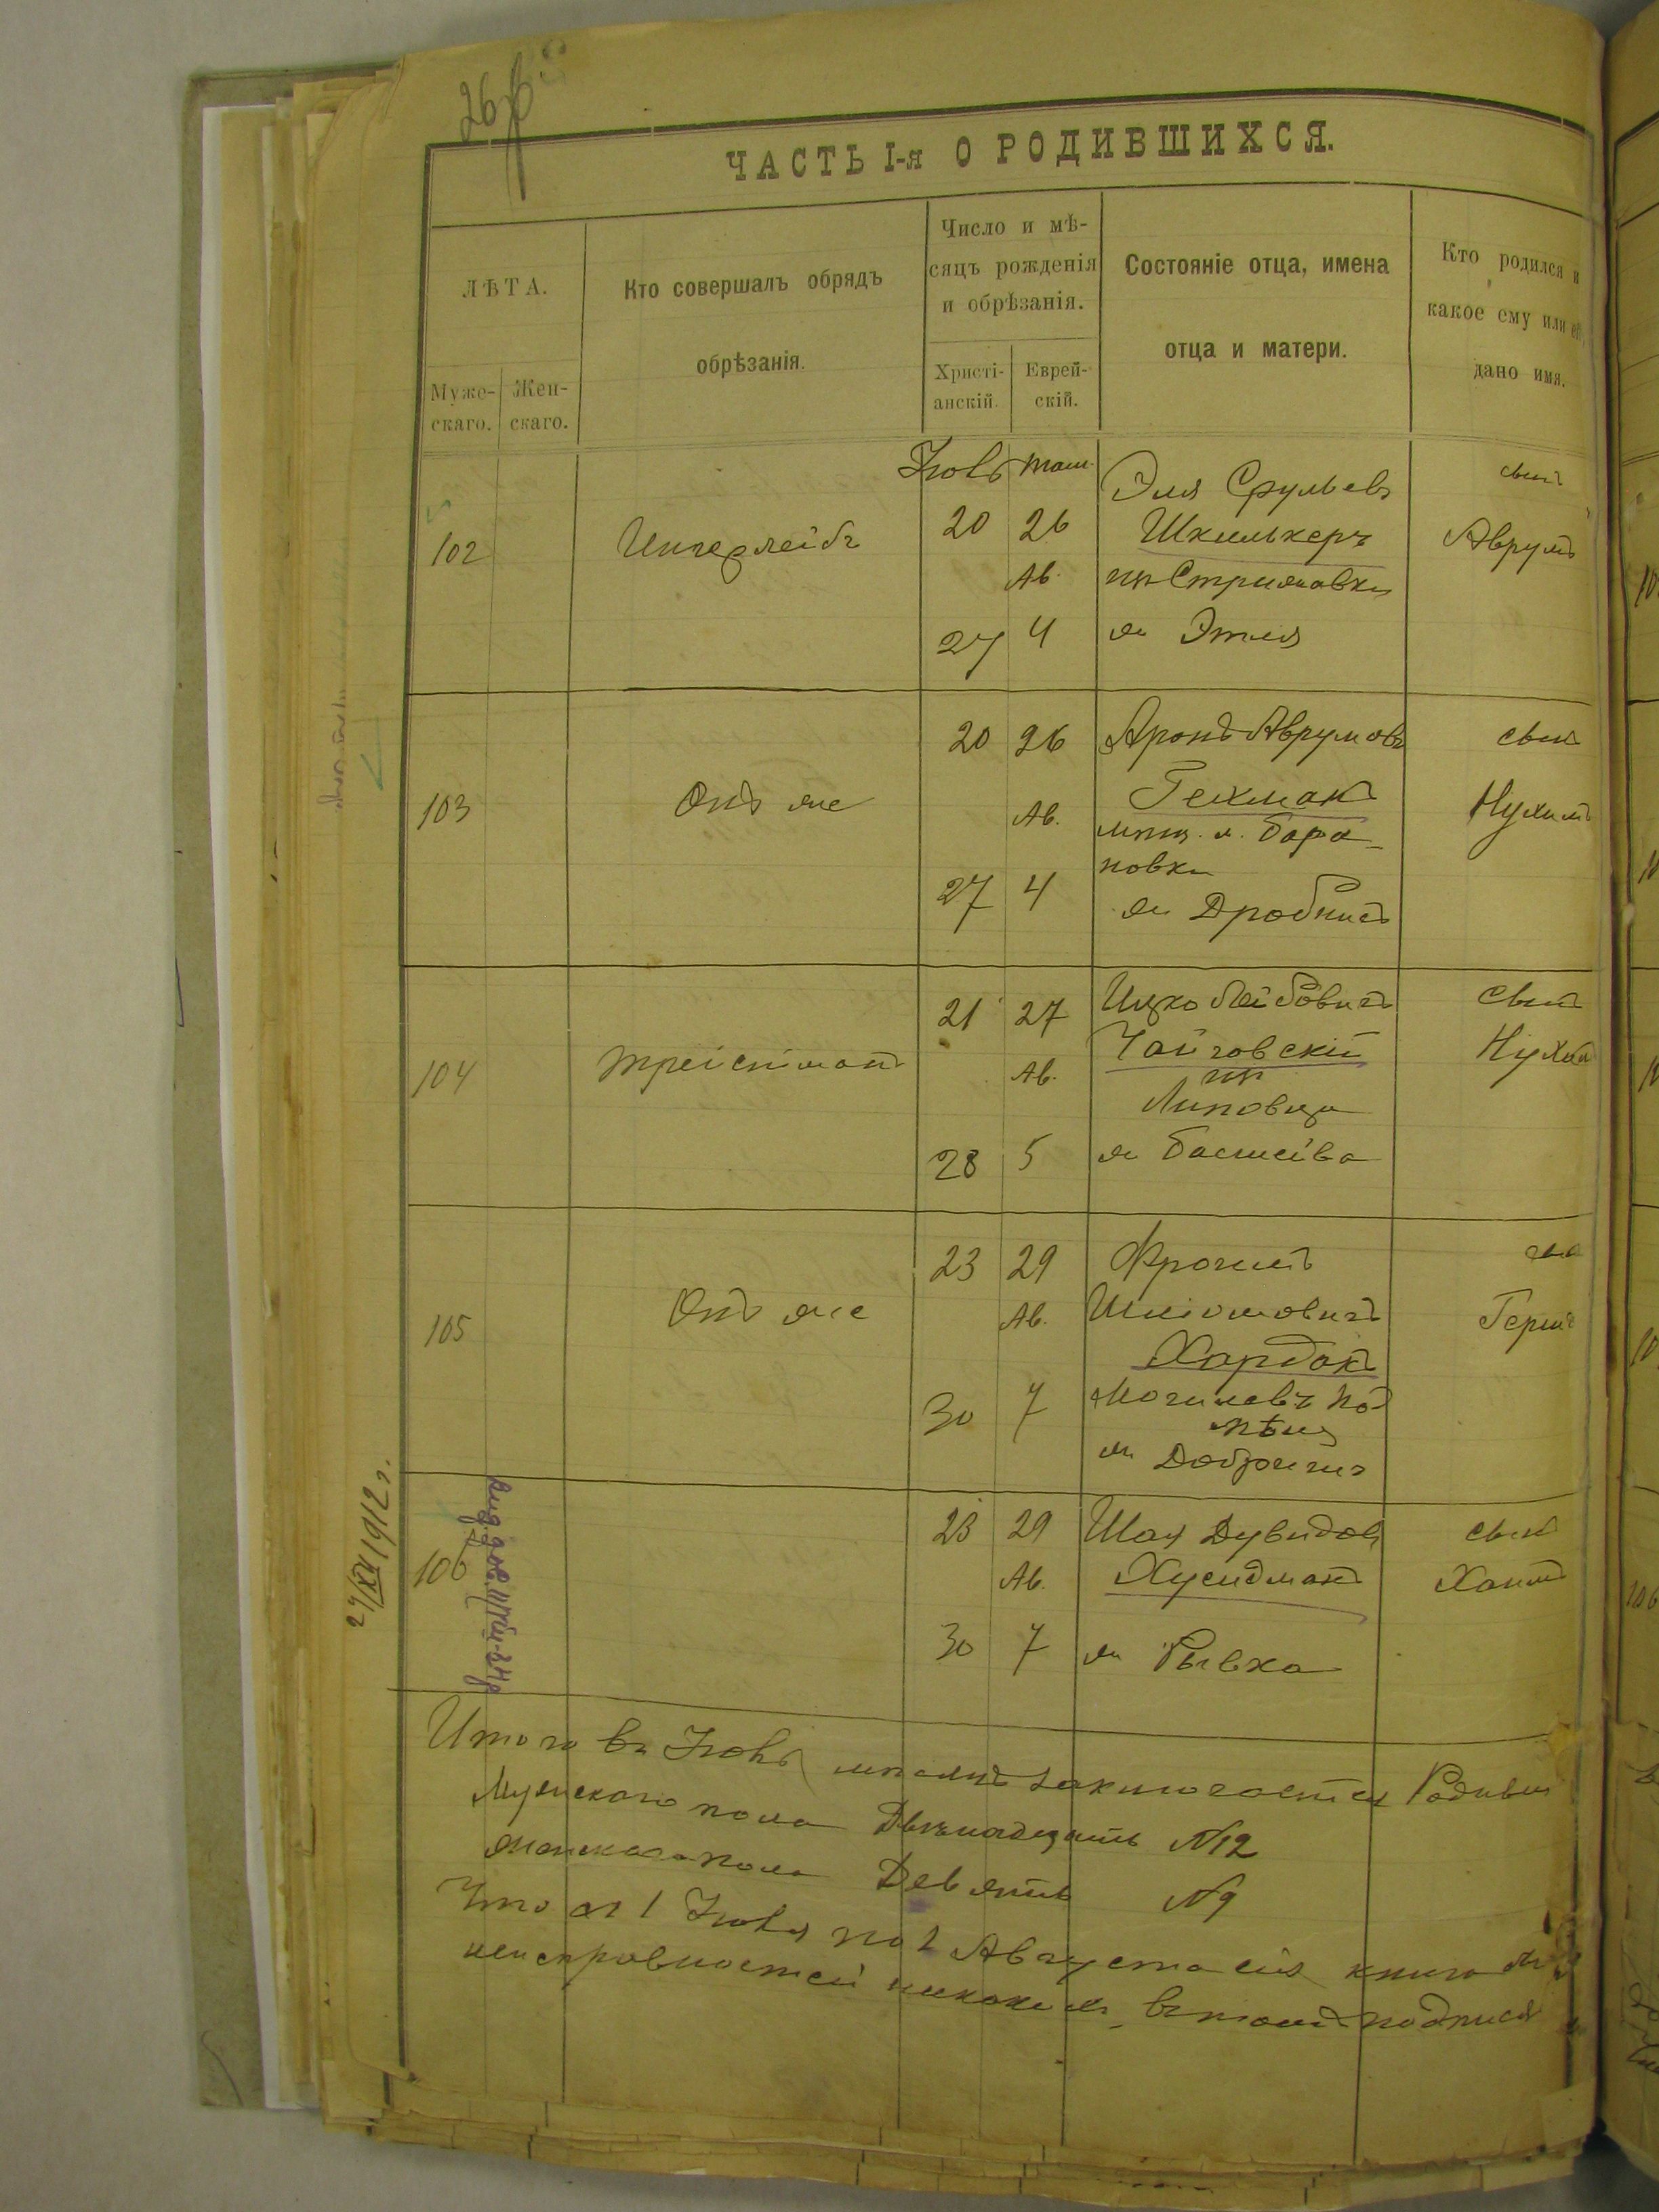 26
ЧАСТЬ I-я О РОДИВШИХСЯ.
ЛѢТА.
Муже-
скаго.
Жен-
скаго.
Кто совершалъ обрядъ
обрѣзанія.
Число и мѣ-
сяцъ рожденія
и обрѣзанія.
Христі-
анскій.
Еврей-
скій.
Состояніе отца, имена
отца и матери.
Кто родился и
какое ему или ей
дано имя.
102
Ингерлейбъ
20 26
Ав.
27 4
Эля Срульевъ
Шкилькеръ
Стрижавки
ж Этля
сынъ
Аврумъ
103
Онъ же
20 26
Ав.
27 4
Аронъ Аврумовъ
Гехманъ
мѣщ. м. Бара-
новки
ж Дробнисъ
сынъ
Нухимъ
104
Трейстманъ
21 27
Ав.
28 5
Ицко Лейбовичъ
Чайговскій
Липовца
ж Басшейва
сынъ
Нухим
105
Онъ же
23 29
Ав.
30 7
Фроимъ
Шліомовичъ
Хардакъ
Могилевъ Под
ж
Гершъ
106
23 29
Ав.
30 7
Шая Дувидовъ
Хусидманъ
ж Рывка
сынъ
Хаимъ
27/XII 1912 г.
Итого въ Іюлѣ мѣсяцѣ заключается Родивш
Мужескаго пола Двѣнадцать №12
Женскаго пола Девять №9
Что съ 1 Іюля по 1 Августа сія книга
неисправностей никакихъ въ томъ подпися